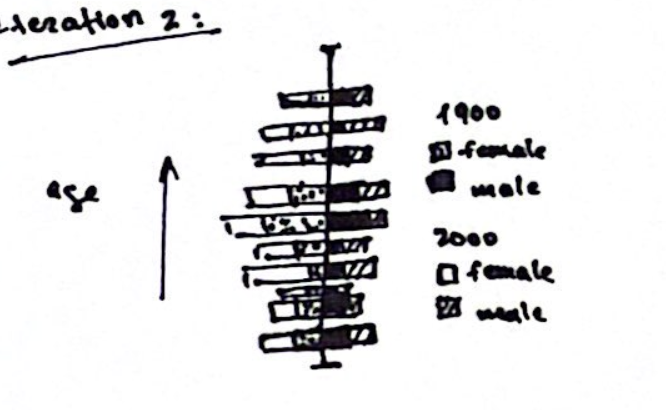 Iteration 2:
age
1900
female
male
2000
female
male